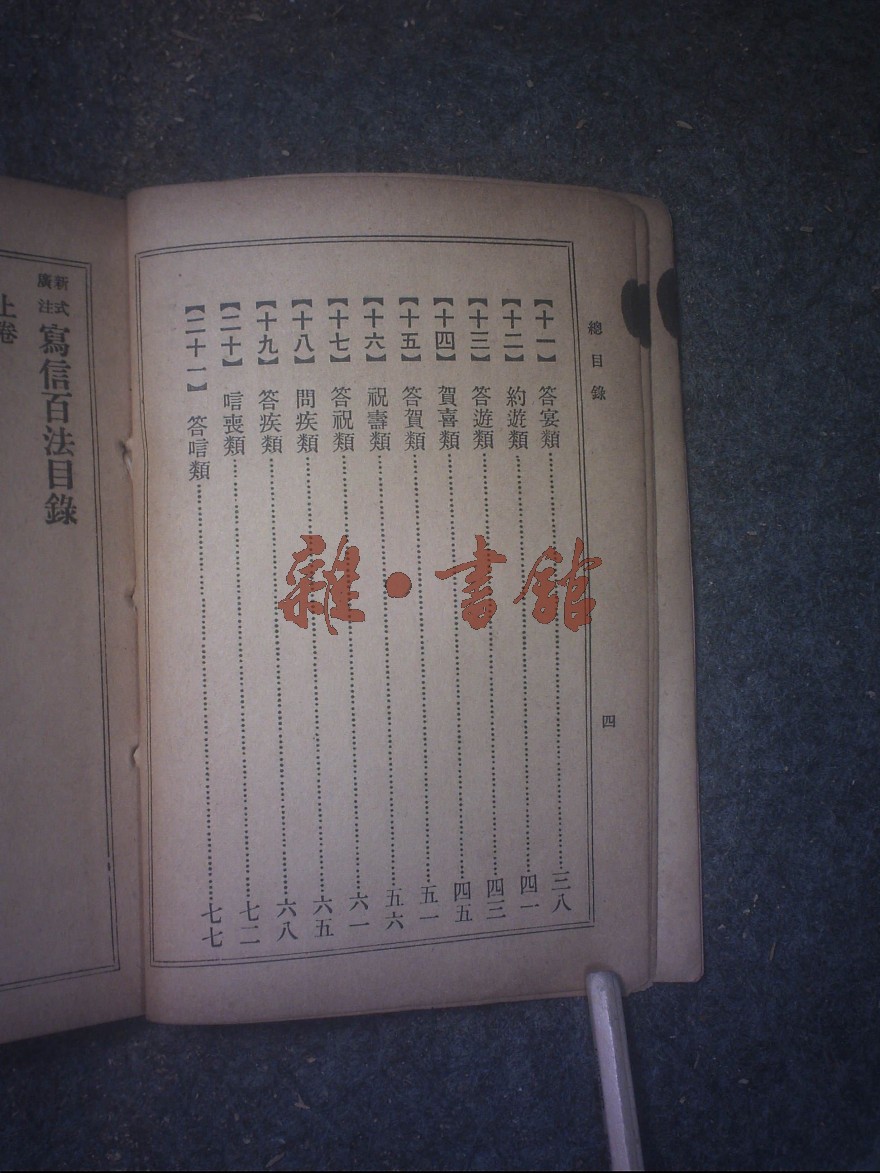 總目錄
四
【十一】 答宴類……三八
【十二】 約遊類……四一
【十三】 答遊類……四三
【十四】 賀喜類……四五
【十五】 答賀類……五一
【十六】 祝壽類……五六
【十七】 答祝類……六一
【十八】 問疾類……六五
【十九】 答疾類……六八
【二十】 唁喪類……七二
【二十一】 答唁類……七七
新式
廣注
寫信百法目錄
上卷
雜·書館